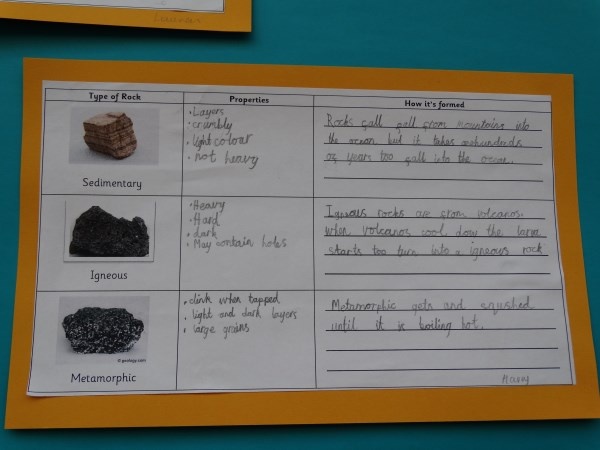 Type of Rock
Properties
How it's formed
Sedimentary
• Layers
• crumbly
• light colour
• not heavy
Rocks fall gell from mountains into
the ocean but it takes
of years too fall into the ocean.
Igneous
• Heavy
• Hard
• dark
• May contain holes
Igneous rocks are from volcanos.
when volcanos cool dow the larva
starts too turn into a igneous rock
© geology.com
Metamorphic
• clink when tapped
• light and dark layers
• large grains
Metamorphic gets and squshed
until it is boiling hot.
Harry